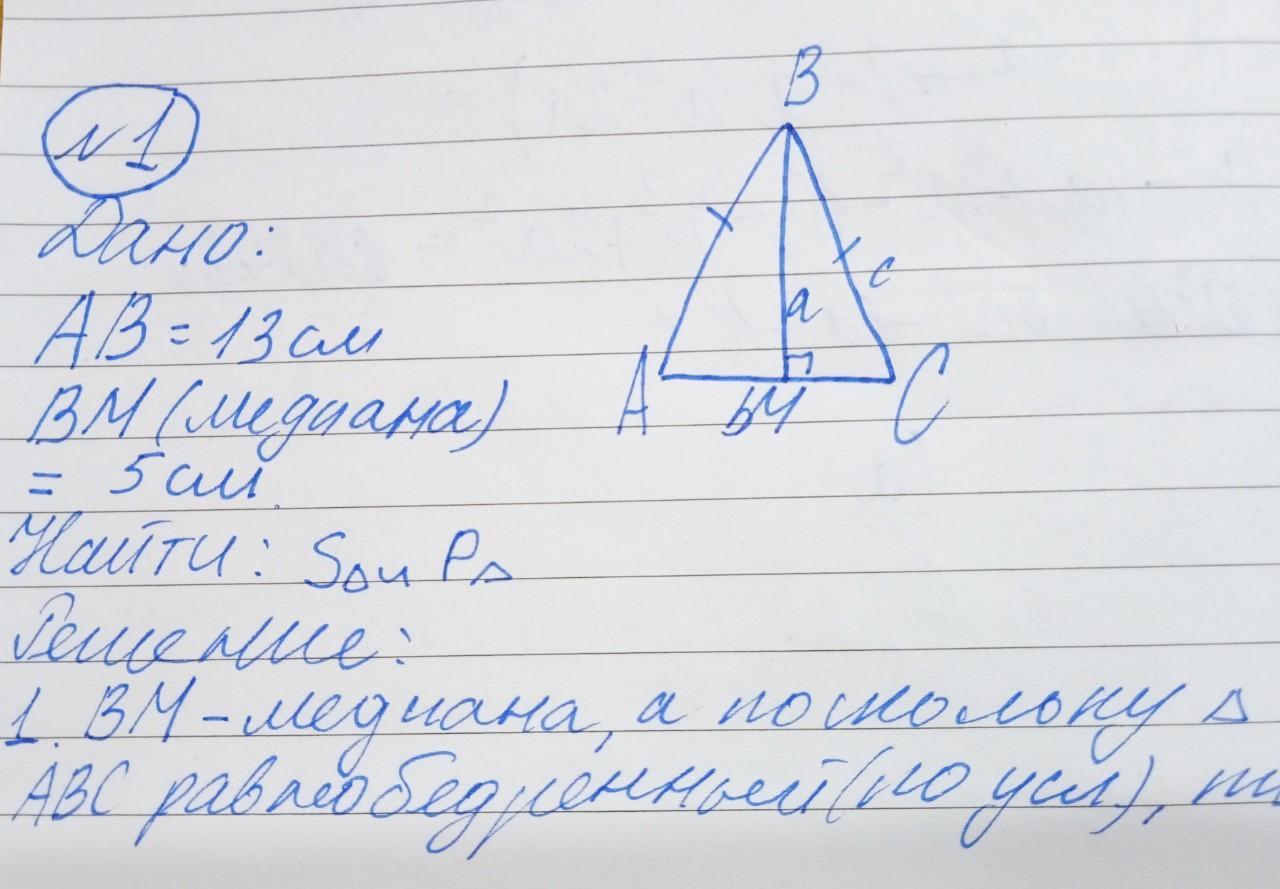 N1
B
Дано:
AB = 13 см
a
c
A
bM
C
BM (медиана)
= 5 см.
Найти: S△ и P△
Решение:
1. BM – медиана, а поскольку △
ABC равнобедренный (по усл),